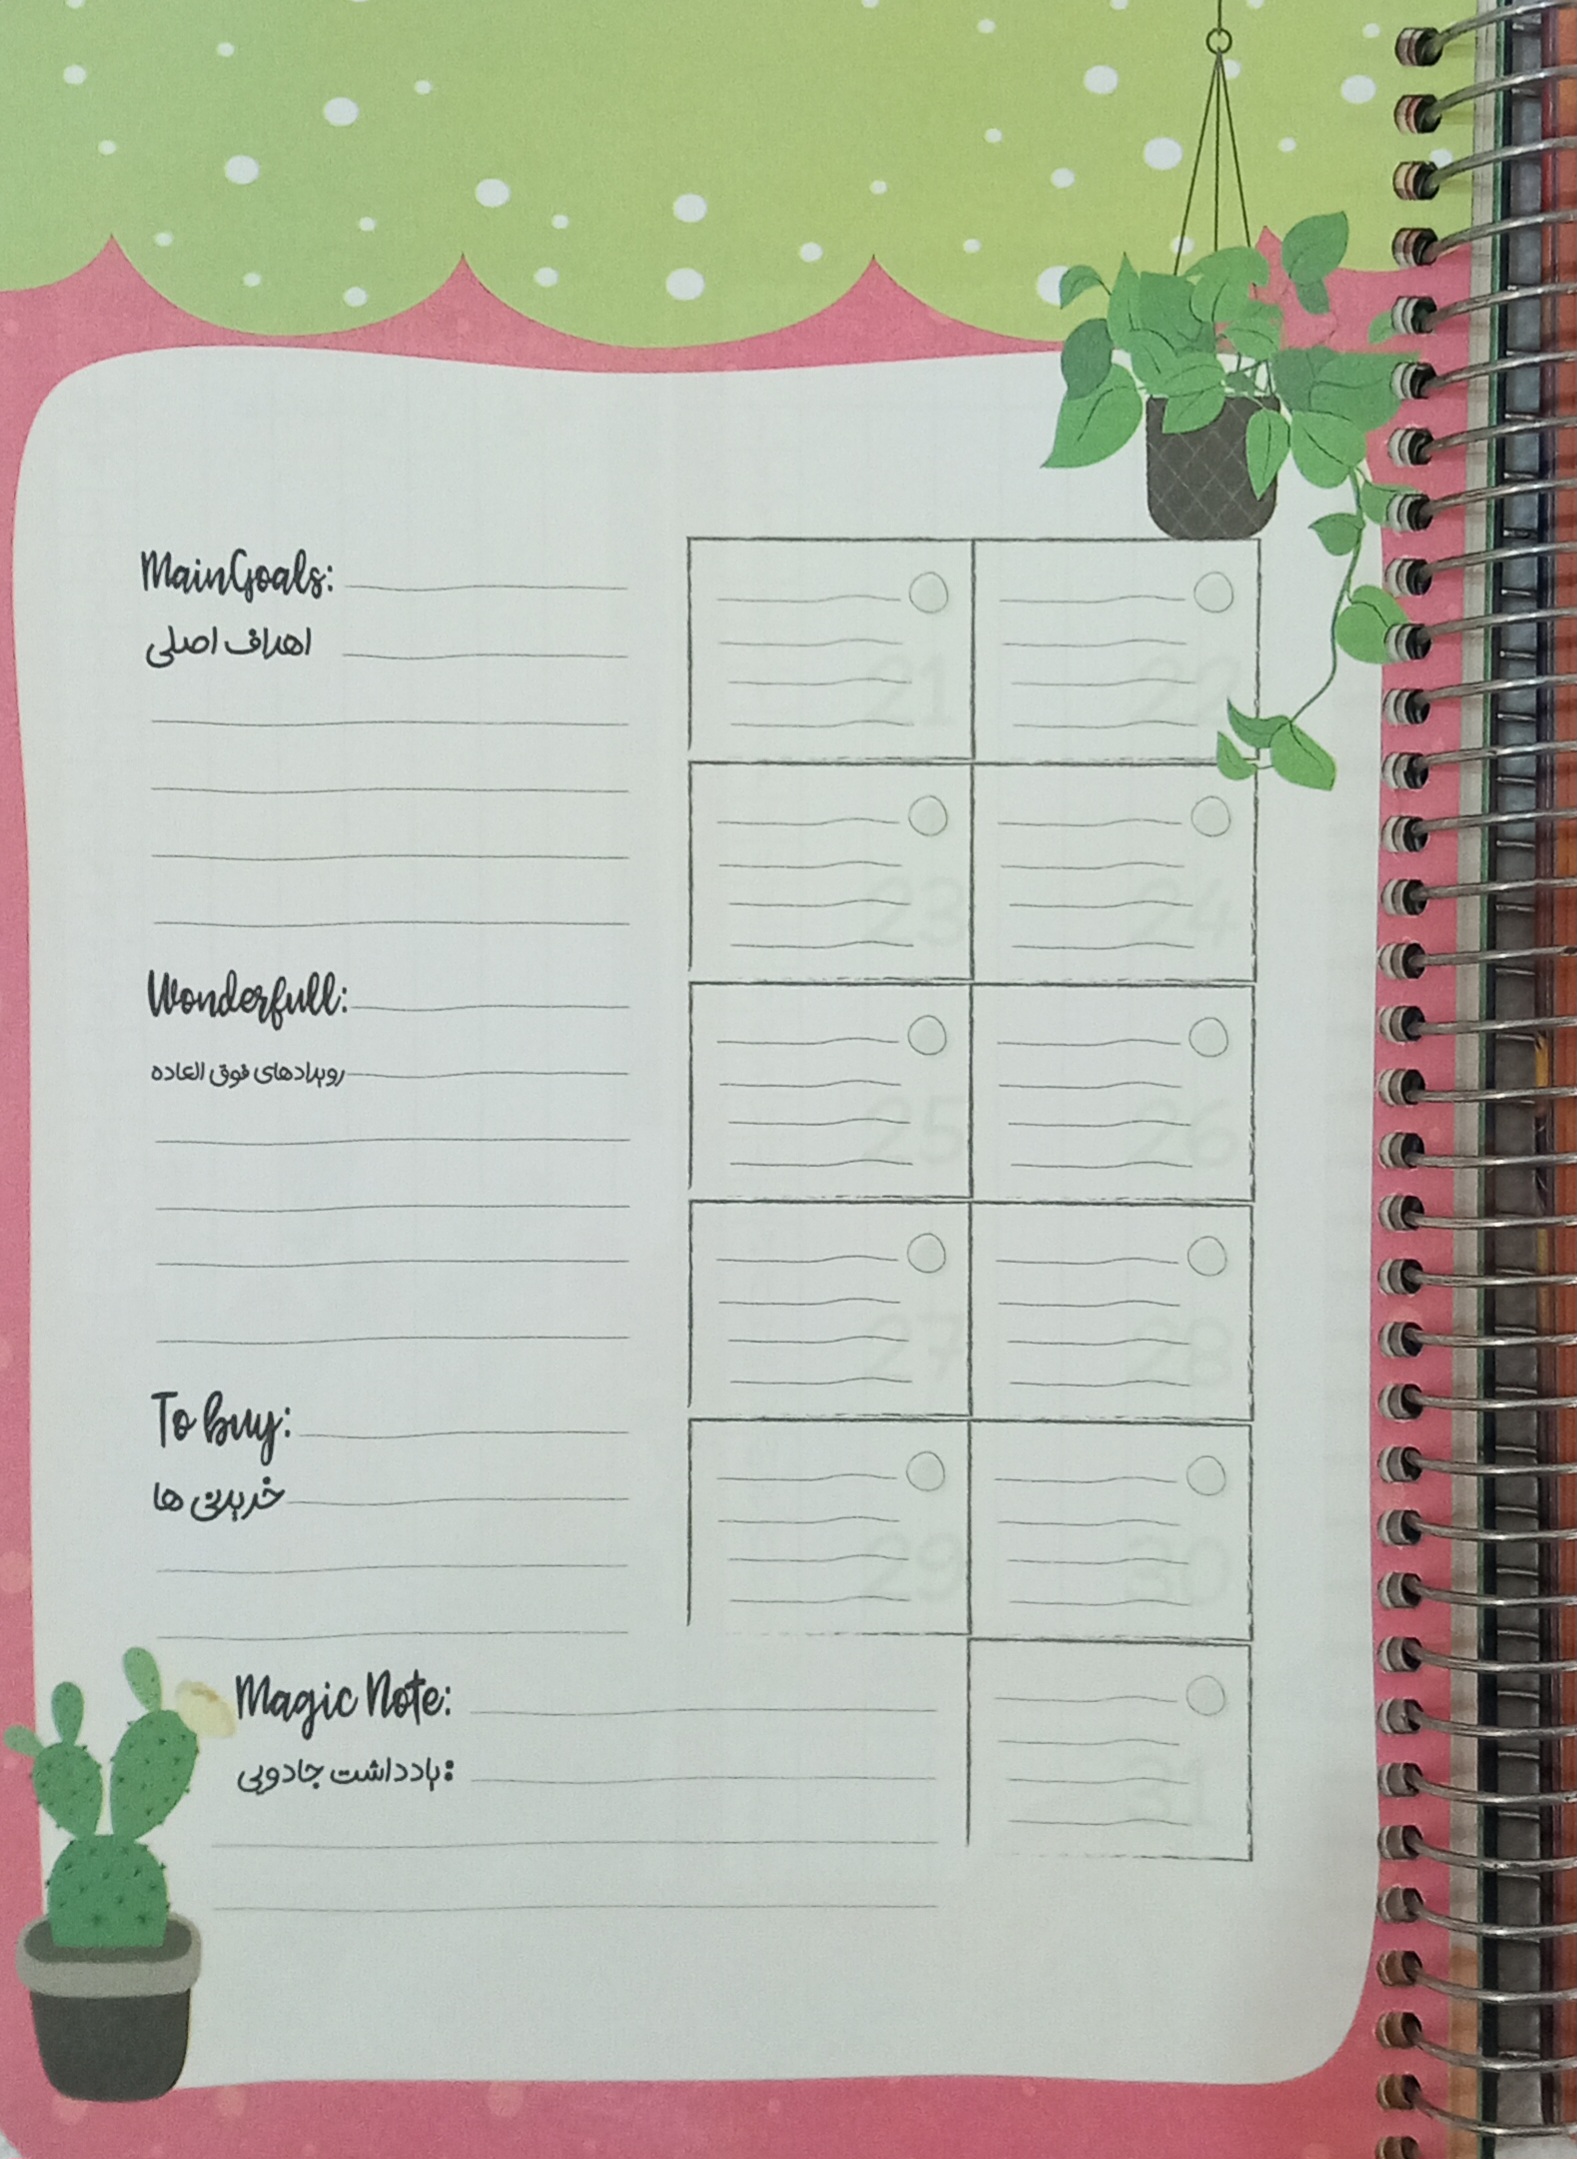 Main Goals:
اهداف اصلی
21 22
23 24
Wonderfull:
رویدادهای فوق العاده
25 26
27 28
To buy:
خریدنی ها
29 30
Magic Note:
یادداشت جادویی:
31